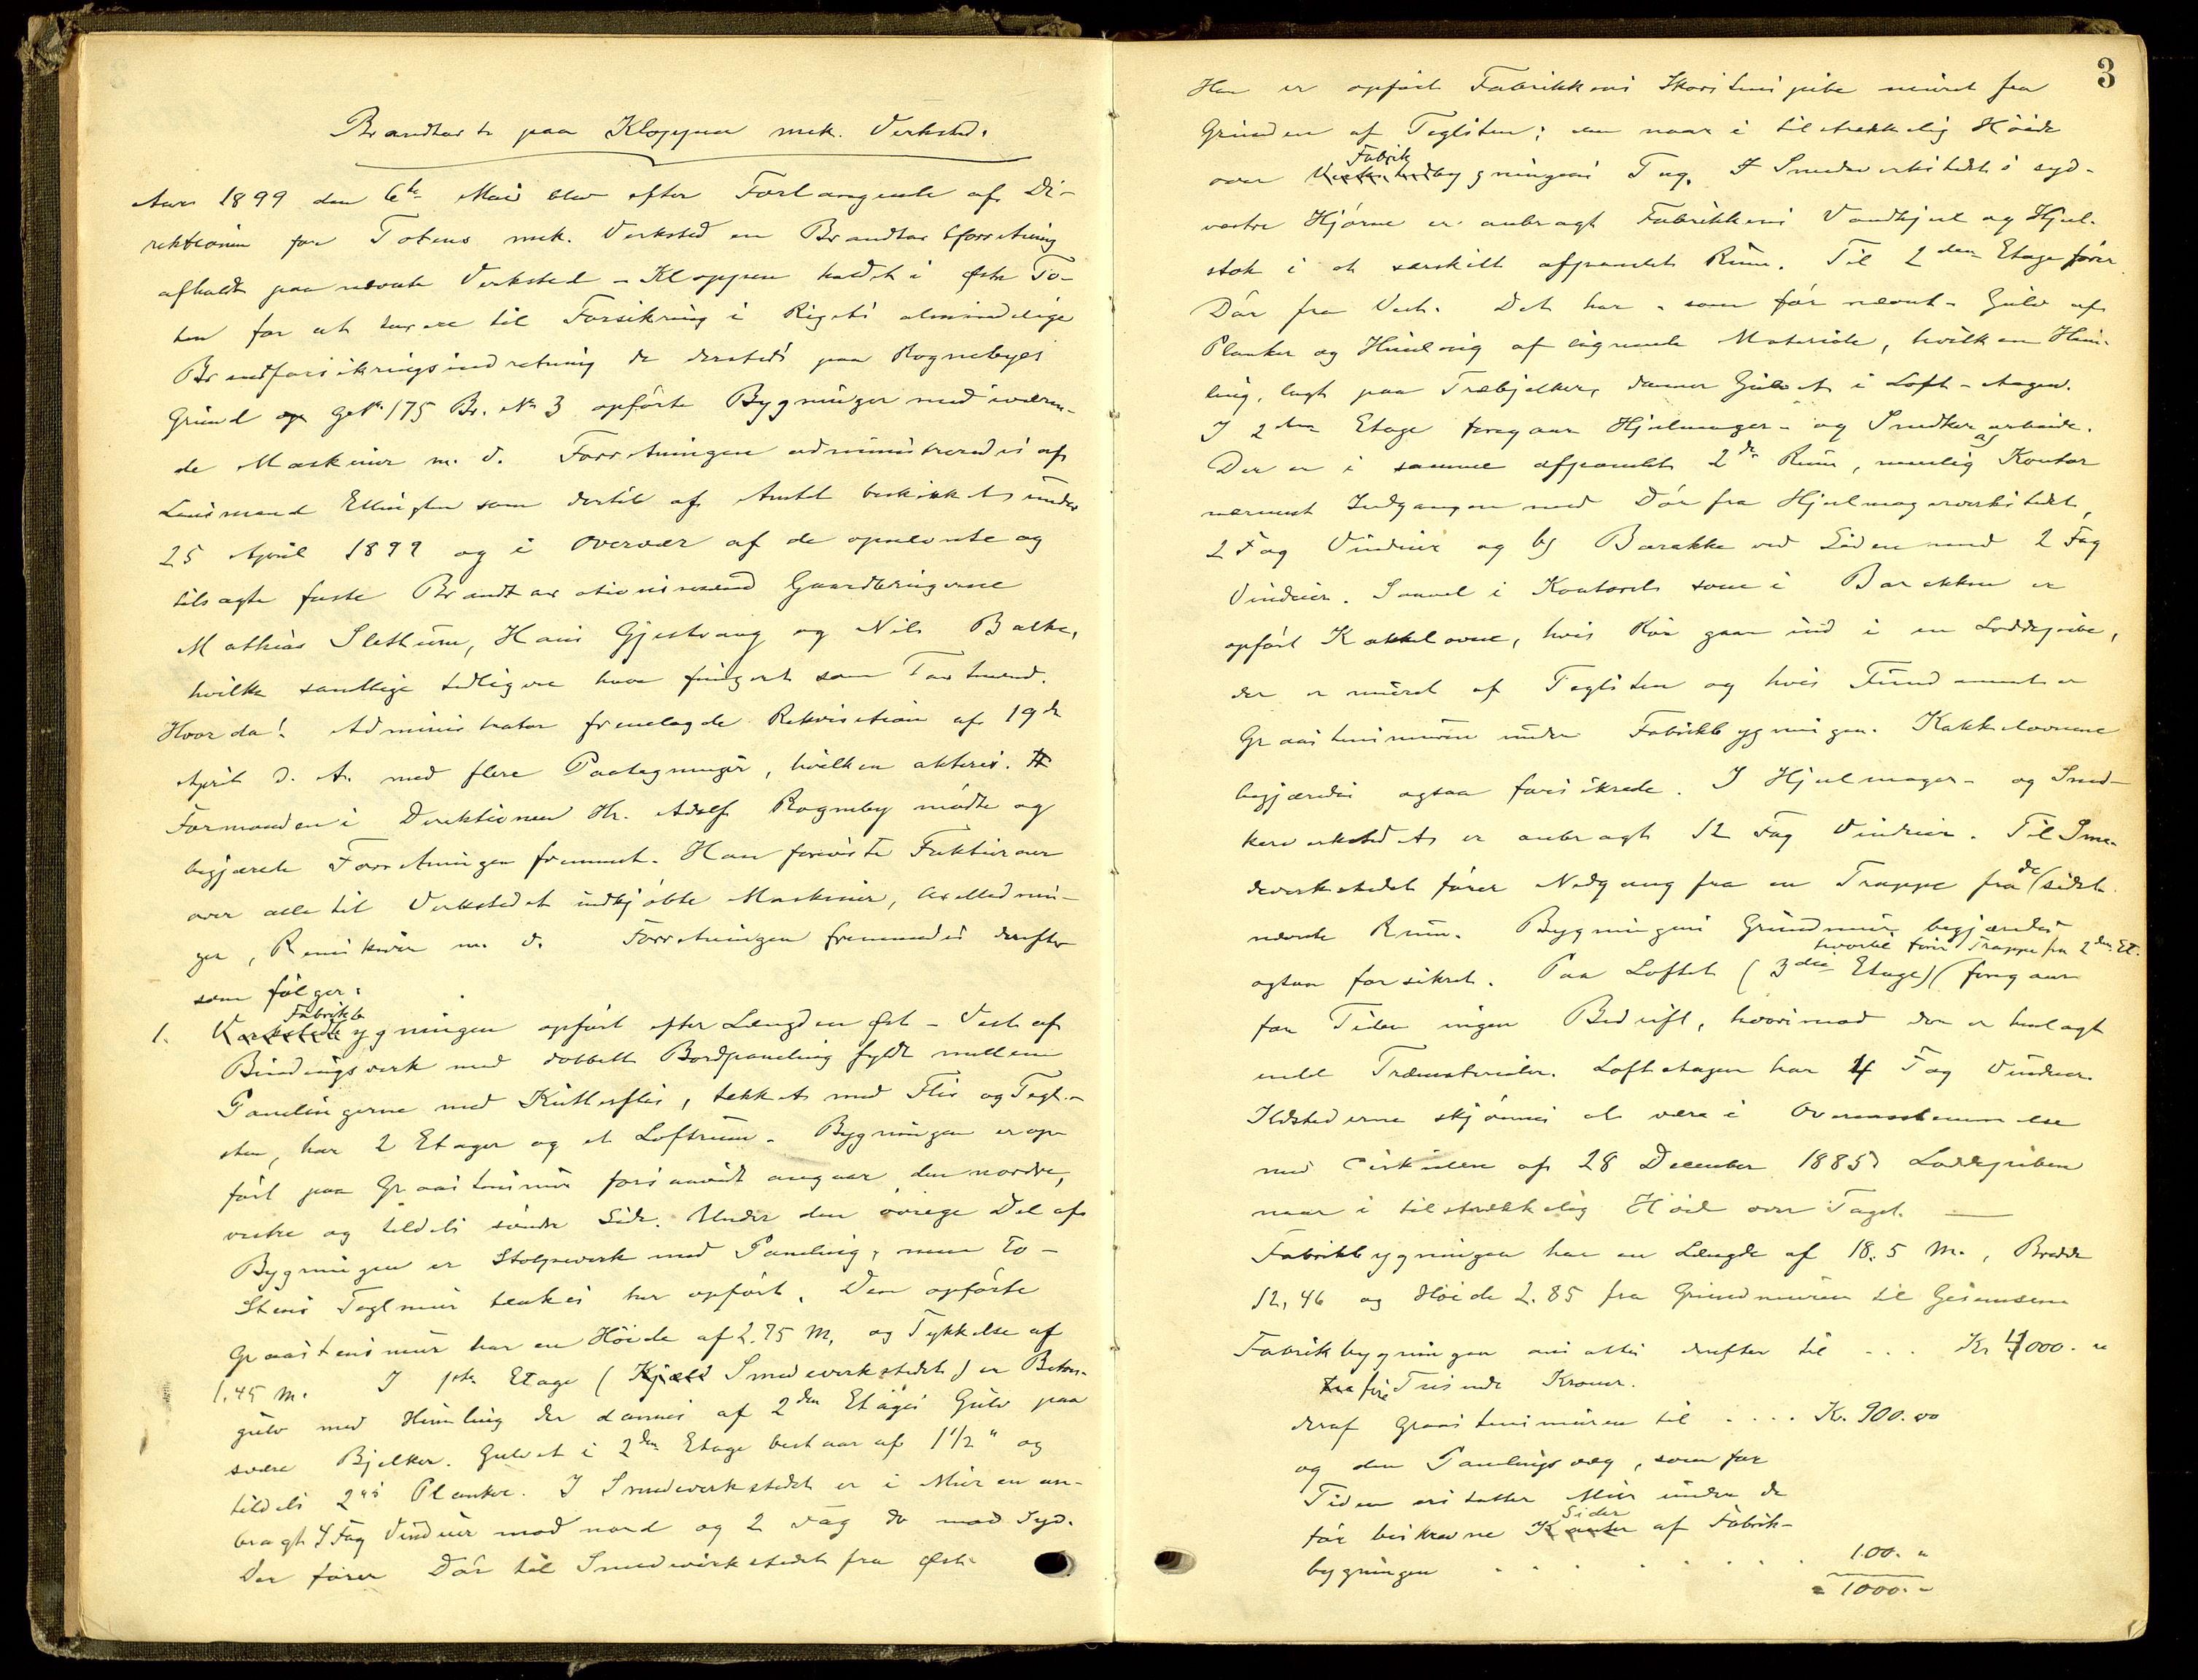 Brandtaxt paa Kloppen mek. Verksted.
Aar 1899 den 6te Mai blev efter Forlangende af Di-
rektionen for Totens mek. Verksted en Brandtaxtforretning
afholdt paa nævnte Verksted - Kloppen kaldet i Østre To-
ten for at taxere til Forsikring i Rigets almindelige
Brandforsikringsindretning de dersteds paa Rognebys
Grund og G.No 175 Br. No 3 opførte Bygninger med iværen-
de Maskiner m. v. Forretningen administreredes af
Lensmand Ellingsen som dertil af Amtet beskikket under
25 April 1899 og i Overvær af de opnævnte og
tilsagte faste Brandtaxationsmænd Gaardbrugerne
Mathias Slethum, Hans Gjestvang og Nils Balke,
hvilke samtlige tidligere have fungeret som Taxtmænd.
Hvorda! Administrator fremlagde Rekvisition af 19de
April d. A. med flere Paategninger, hvilken akteres.
Formanden i Direktionen Hr. Adolf Rogneby mødte og
begjærede Forretningen fremmet. Han foreviste Fakturaer
over alle til Verkstedet indkjøbte Maskiner, Axellednin-
ger, Remskiver m. v. Forretningen fremmedes derefter
som følger:
Fabrikb
1. Verkstedbygningen opført efter Længden Øst - Vest af
Bindingsverk med dobbelt Bordpaneling fyldt mellem
Panelingerne med Kutterflis, tækket med Flis og Tegl-
sten, har 2 Etager og et Loftrum. Bygningen er op-
ført paa Graastensmur forsaavidt angaar den nordre,
vestre og tildels søndre Side. Under den øvrige Del af
Bygningen er Stolpeverk med Paneling, men To-
Stens Teglmur tænkes her opført. Den opførte
Graastensmur har en Høide af 2.75 M. og Tykkelse af
1.45 M. I 1ste Etage (Kjæld Smedeverkstedet) er Beton-
gulv med Himling der dannes af 2den Etages Gulv paa
svære Bjelker. Gulvet i 2den Etage bestaar af 1 1/2 " og
tildels 2"s Planker. I Smedeverkstedet er i Muren an-
bragt 4 Fag Vinduer mod nord og 2 Fag do mod Syd.
Der fører Dør til Smedeverkstedet fra Øst.
3
Her er opført Fabrikkens Skorstenspibe muret fra
Grunden af Teglsten; den naar i tilstrækkelig Høide
Fabrik
over Verkstedbygningens Tag. I Smedeverkstedets syd-
vestre Hjørne er anbragt Fabrikkens Vandhjul og Hjul-
stok i et særskilt afpanelet Rum. Til 2den Etage fører
Dør fra Vest. Det har - som før nævnt - Gulv af
Planker og Himling af lignende Materiale, hvilken Him-
ling, lagt paa Træbjelker, danner Gulvet i Loft-etagen.
I 2den Etage foregaar Hjulmager- og Snedkerarbeide.
Der er i samme afpanelet 2de Rum, nemlig a) Kontor
nærmest Indgangen med Dør fra Hjulmagerverkstedet,
2 Fag Vinduer og b) Barakke ved Siden med 2 Fag
Vinduer. Saavel i Kontoret som i Barakken er
opført Kakkelovne, hvis Rør gaar ind i en Loddepibe,
der er muret af Teglsten og hvis Fundament er
Graastensmuren under Fabrikbygningen. Kakkelovnene
begjæredes ogsaa forsikrede. I Hjulmager- og Sned-
kerverkstedet er anbragt 12 Fag Vinduer. Til Sme-
deverkstedet fører Nedgang fra en Trappe fra de (sidst
nævnte Rum. Bygningens Grundmur begjæredes
hvortil fører Trappe fra 2den Et.
ogsaa forsikret. Paa Loftet (3die Etage) (foregaar
for Tiden ingen Bedrift, hvorimod der er henlagt
endel Træmaterialer. Loftetagen har 4 Fag Vinduer.
Ildstederne skjønnes at være i Overensstemmelse
med Cirkulære af 28 December 1885) Loddepiben
naar i tilstrækkelig Høide over Taget.
Fabrikbygningen har en Længde af 18.5 M., Bredde
12,46 og Høide 2.85 fra Grundmuren til Gesimsen.
Fabrikbygningen ansattes derefter til ... Kr 4000. "
fire Tusinde Kroner.
deraf Graastensmuren til .... Kr. 900.00
og den Panelingsvæg, som for
Tiden erstatter Mur under de
Sider
før beskrevne Kanter af Fabrik-
bygningen . . . . . . . 100. "
= 1000. -